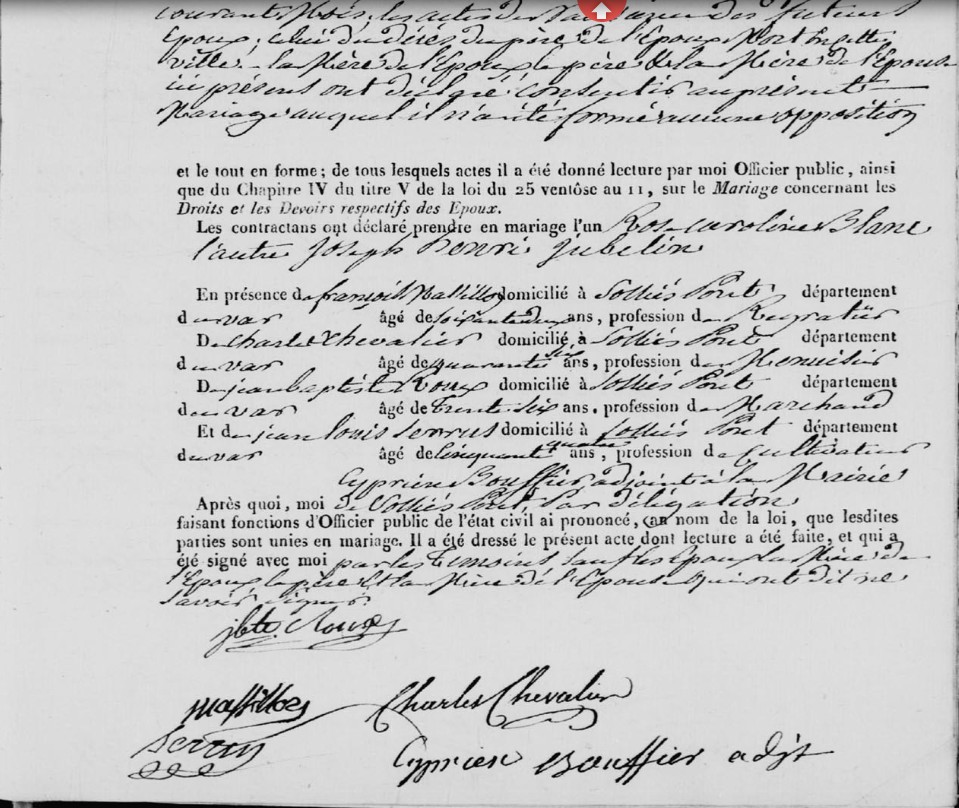 courant Mois, les actes de Naissance des futurs
Epoux, celui du décès du père de l'Epoux Mort en cette
ville. la Mère de l'Epoux le père & la Mère de l'Epouse
ici présent ont déclaré consentir au présent
Mariage auquel il n'a été formé aucune opposition
et le tout en forme ; de tous lesquels actes il a été donné lecture par moi Officier public, ainsi
que du Chapitre IV du titre V de la loi du 25 ventôse au 11, sur le Mariage concernant les
Droits et les Devoirs respectifs des Epoux.
Les contractans ont déclaré prendre en mariage l'un Rose Caroline Blanc
l'autre Joseph Henri Jubelin
En présence de françois Massillon domicilié à Solliés Pont département
du var âgé de soixante deux ans, profession de
De Charles Chevalier domicilié à Solliés Pont département
du var âgé de quarante six ans, profession de Menuisier
De jean baptiste Roux domicilié à Solliés Pont département
du var âgé de Trente Six ans, profession de Marchand
Et de jean Louis Serrus domicilié à Solliés Pont département
du var âgé de Cinquante quatre ans, profession de Cultivateur
Après quoi, moi Cyprien Bouffier adjoint à la Mairie
de Solliés Pont, Par délégation
faisant fonctions d'Officier public de l'état civil ai prononcé, au nom de la loi, que lesdites
parties sont unies en mariage. Il a été dressé le présent acte dont lecture a été faite, et qui a
été signé avec moi par les Temoins sauf les Epoux La Mère de
l'Epoux le père Et la Mère de l'Epouse qui ont dit ne
savoir signer.
jbte Roux
Massillon Charles Chevalier
Serrus
Cyprien Bouffier adjt